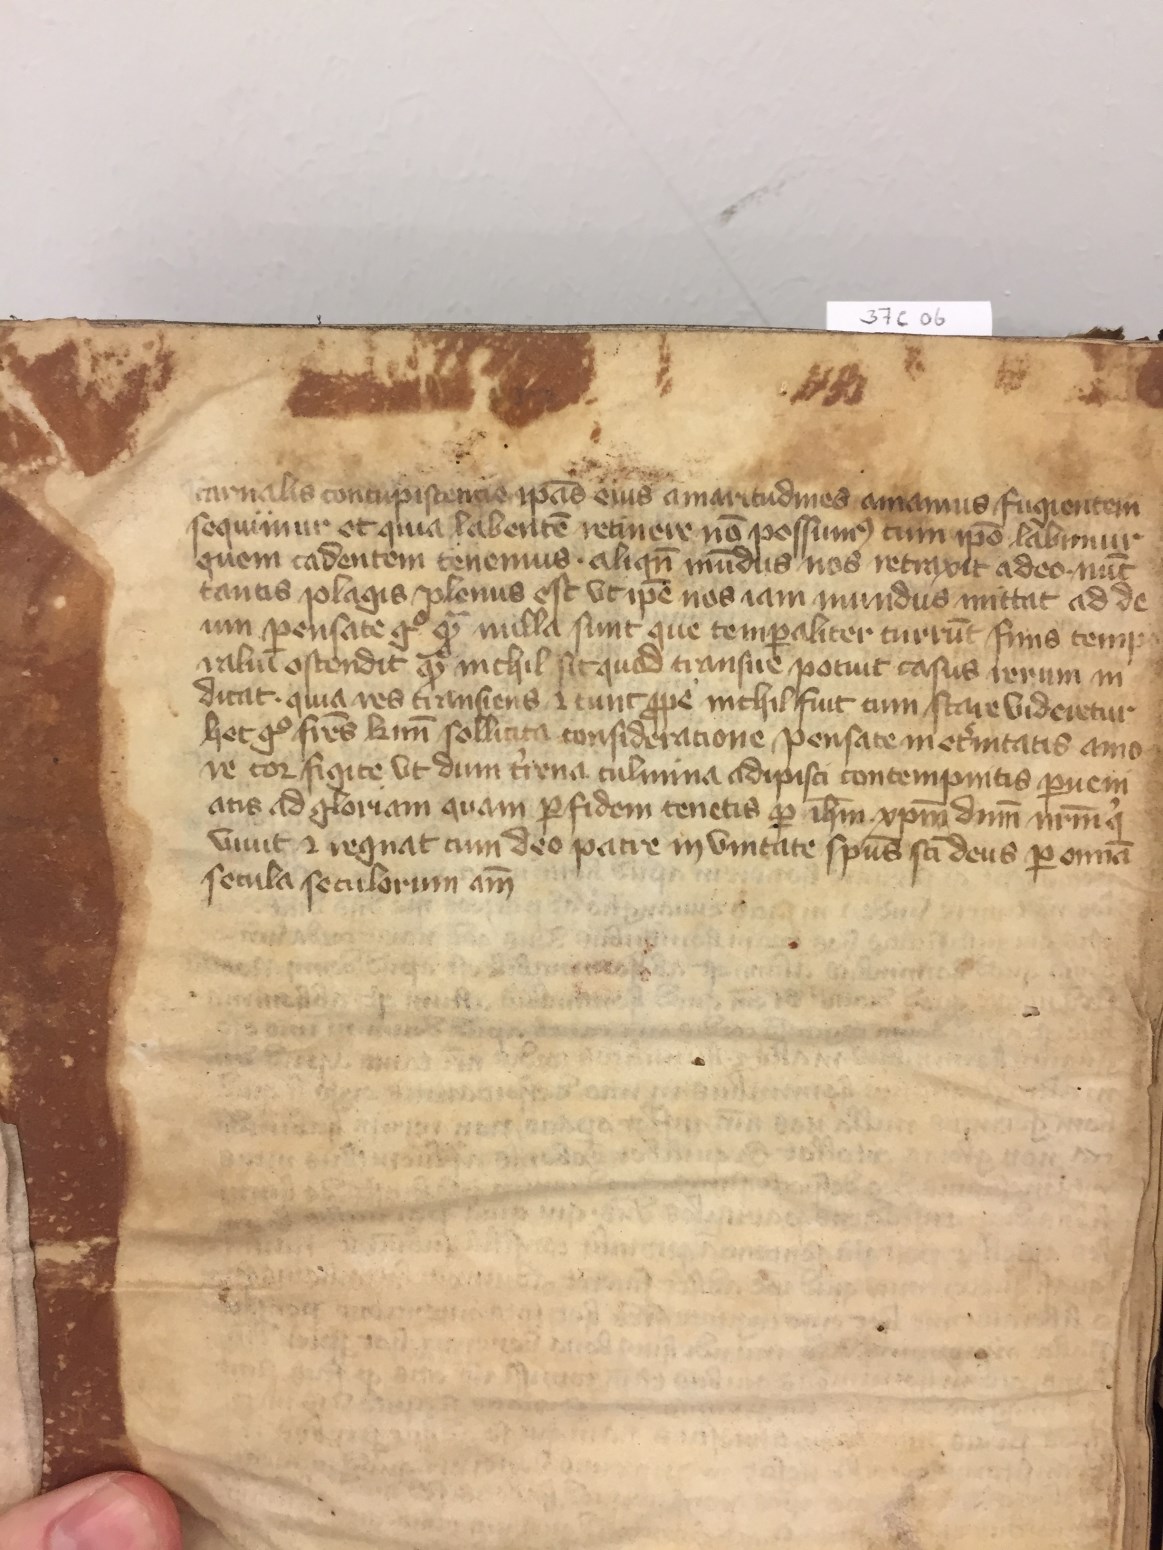 37C 06
carnalis concupiscencie ip̄as eius amaritudines amamus fugientem
sequimur et quia labentē retinere nō possum⁹ cum ip̄o labimur
quem cadentem tenemus · aliqn̄ mūdus nos retraxit a deo · nūc
tantis plagis plenus est vt ip̄e nos iam mundus mittat ad de
um pensate gͦ qꝛ nulla sunt que temꝑaliter currūt finis temp
raliū ostendit qꝛ nichil sit quod transire potuit casus rerum in
dicat · quia res transiens ⁊ tunc ꝓpe nichil fuit cum stare videretur
hec gͦ fr̄es k̄mi sollicita consideratione pensate in et̓nitatis amo
re cor figite vt dum t̓rena culmina adipisci contempnitis ꝑueni
atis ad gloriam quam ꝑ fidem tenetis ꝑ ih̄m xp̄m dn̄m nr̄m q̇
viuit ⁊ regnat cum deo patre in vnitate sp̄us sc̄i deus ꝑ om̄ia
secula seculorum am̄